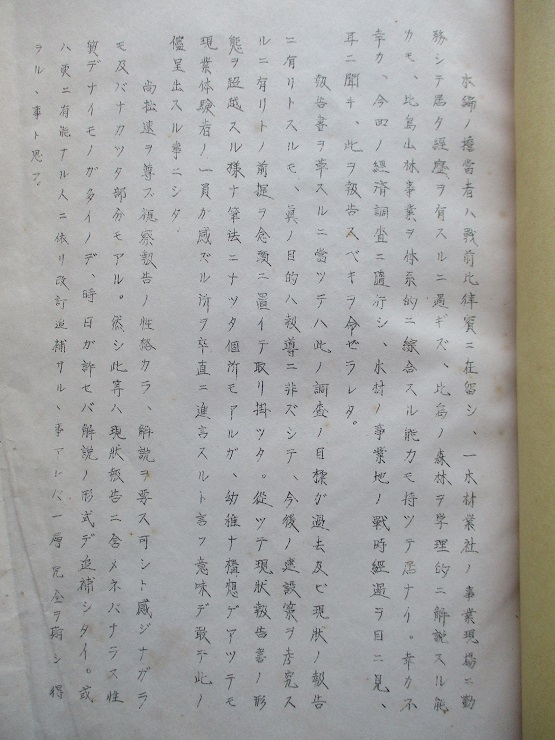 本編ノ擔當者ハ戰前比律賓ニ在留シ、一木材業社ノ事業現場ニ勤
務シテ居タ經歴ヲ有スルニ過ギズ、比島ノ森林ヲ学理的ニ解説スル能
カモ、比島山林事業ヲ体系的ニ綜合スル能力モ持ツテ居ナイ。幸カ不
幸カ、今回ノ経済調査ニ随行シ、木材ノ事業地ノ戰時経過ヲ目ニ見、
耳ニ聞キ、此ヲ報告スベキヲ命ゼラレタ。
報告書ヲ草スルニ當ツテハ此ノ調査ノ目標ガ過去及ビ現狀ノ報告
ニ有リトスルモ、真ノ目的ハ報導ニ非ズシテ、今後ノ建設策ヲ考究ス
ルニ有リトノ前提ヲ念頭ニ置イテ取リ掛ツタ。從ツテ現狀報告書ノ形
態ヲ超感スル様ナ筆法ニナツタ個所モアルガ、幼稚ナ構想デアツテモ
現業体験者ノ一員ガ感ズル所ヲ卒直ニ進言スルト言フ意味デ敢テ此ノ
儘呈出スル事ニシタ。
尚拙速ヲ尊ス視察報告ノ性格カラ、解説ヲ要ス可シト感ジナガラ
モ及バナカツタ部分モアル。然シ此等ハ現狀報告ニ含メネバナラヌ性
質デナイモノガ多イノデ、時日ガ許セバ解説ノ形式デ追補シタイ。或
ハ更ニ有能ナル人ニ依リ改訂追補サルヽ事アレバ一層完全ヲ期シ得
ラルヽ事ト思フ。